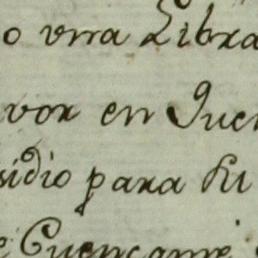 o una Libra
vor en Quen
sidio para su
e Cuencame